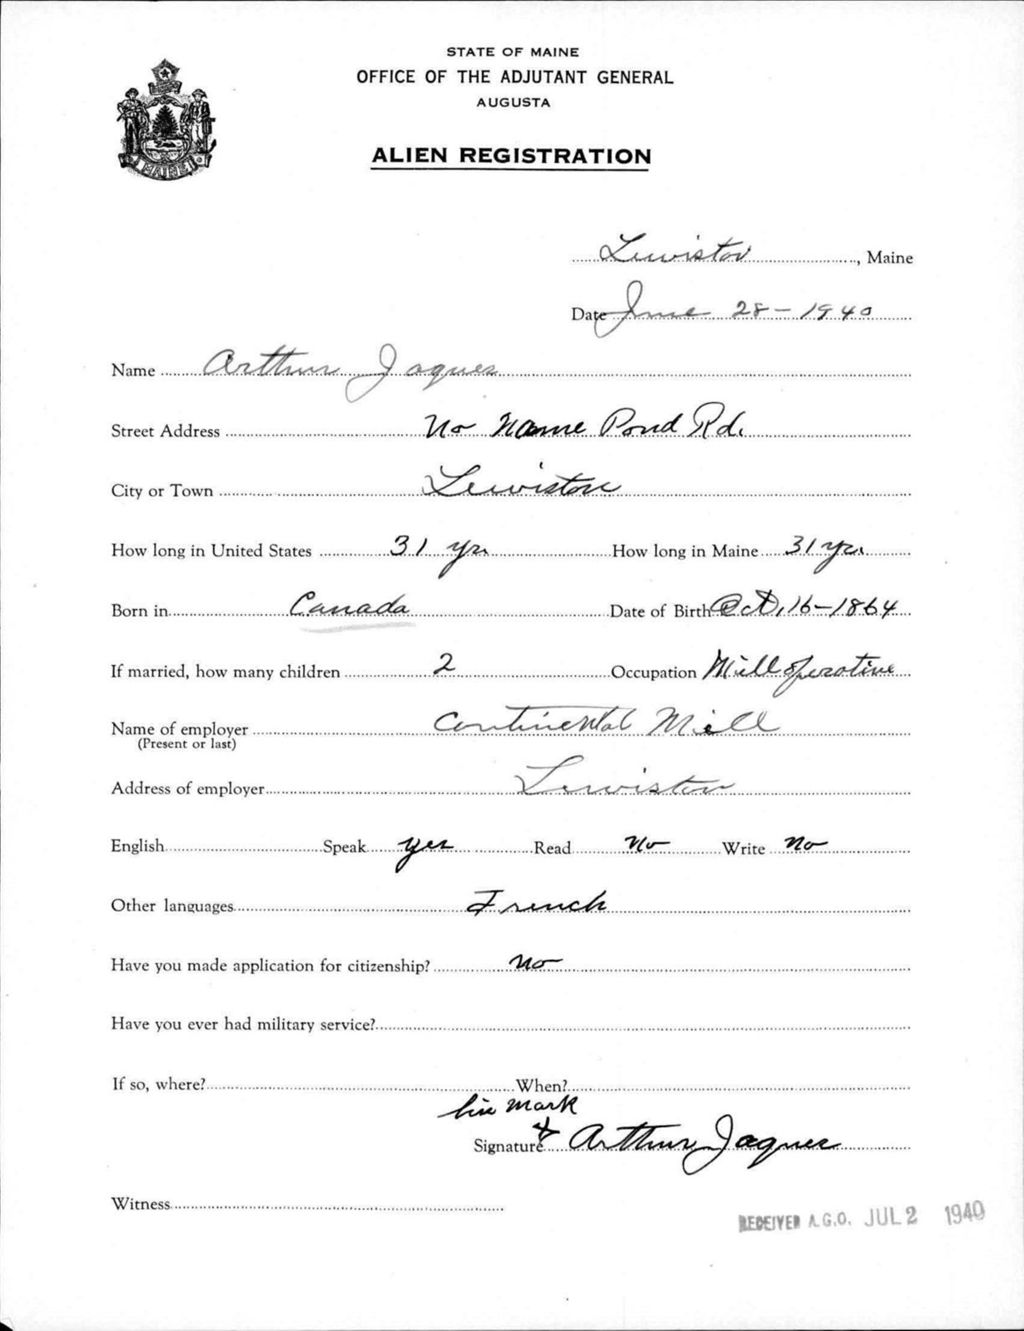 STATE OF MAINE
OFFICE OF THE ADJUTANT GENERAL
AUGUSTA
ALIEN REGISTRATION
MAINE
Lewiston, Maine
Date June 28-1940
Name Arthur Jaques
Street Address No Name Pond Rd.
City or Town Lewiston
How long in United States 31 yrs How long in Maine 31 yrs.
Born in Canada Date of Birth Oct, 16-1864
If married, how many children 2 Occupation Mill operative
Name of employer Continental Mill
(Present or last)
Address of employer Lewiston
English Speak yes Read No Write No
Other languages French
Have you made application for citizenship? No
Have you ever had military service?
If so, where? When?
his mark
Signature x Arthur Jaques
Witness
RECEIVED A.G.O. JUL 2 1940